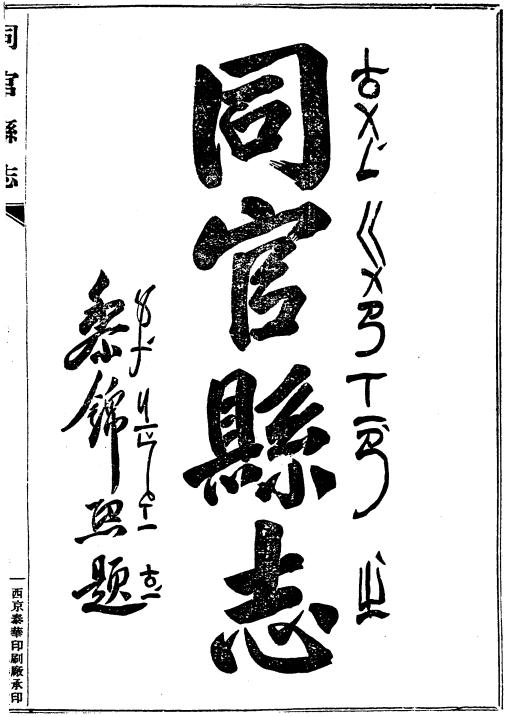 ㄊㄨㄥˊ ㄍㄨㄢ ㄒㄧㄢˋ ㄓˋ
同官縣志
黎錦熙題
同官縣志
西京泰華印刷廠承印